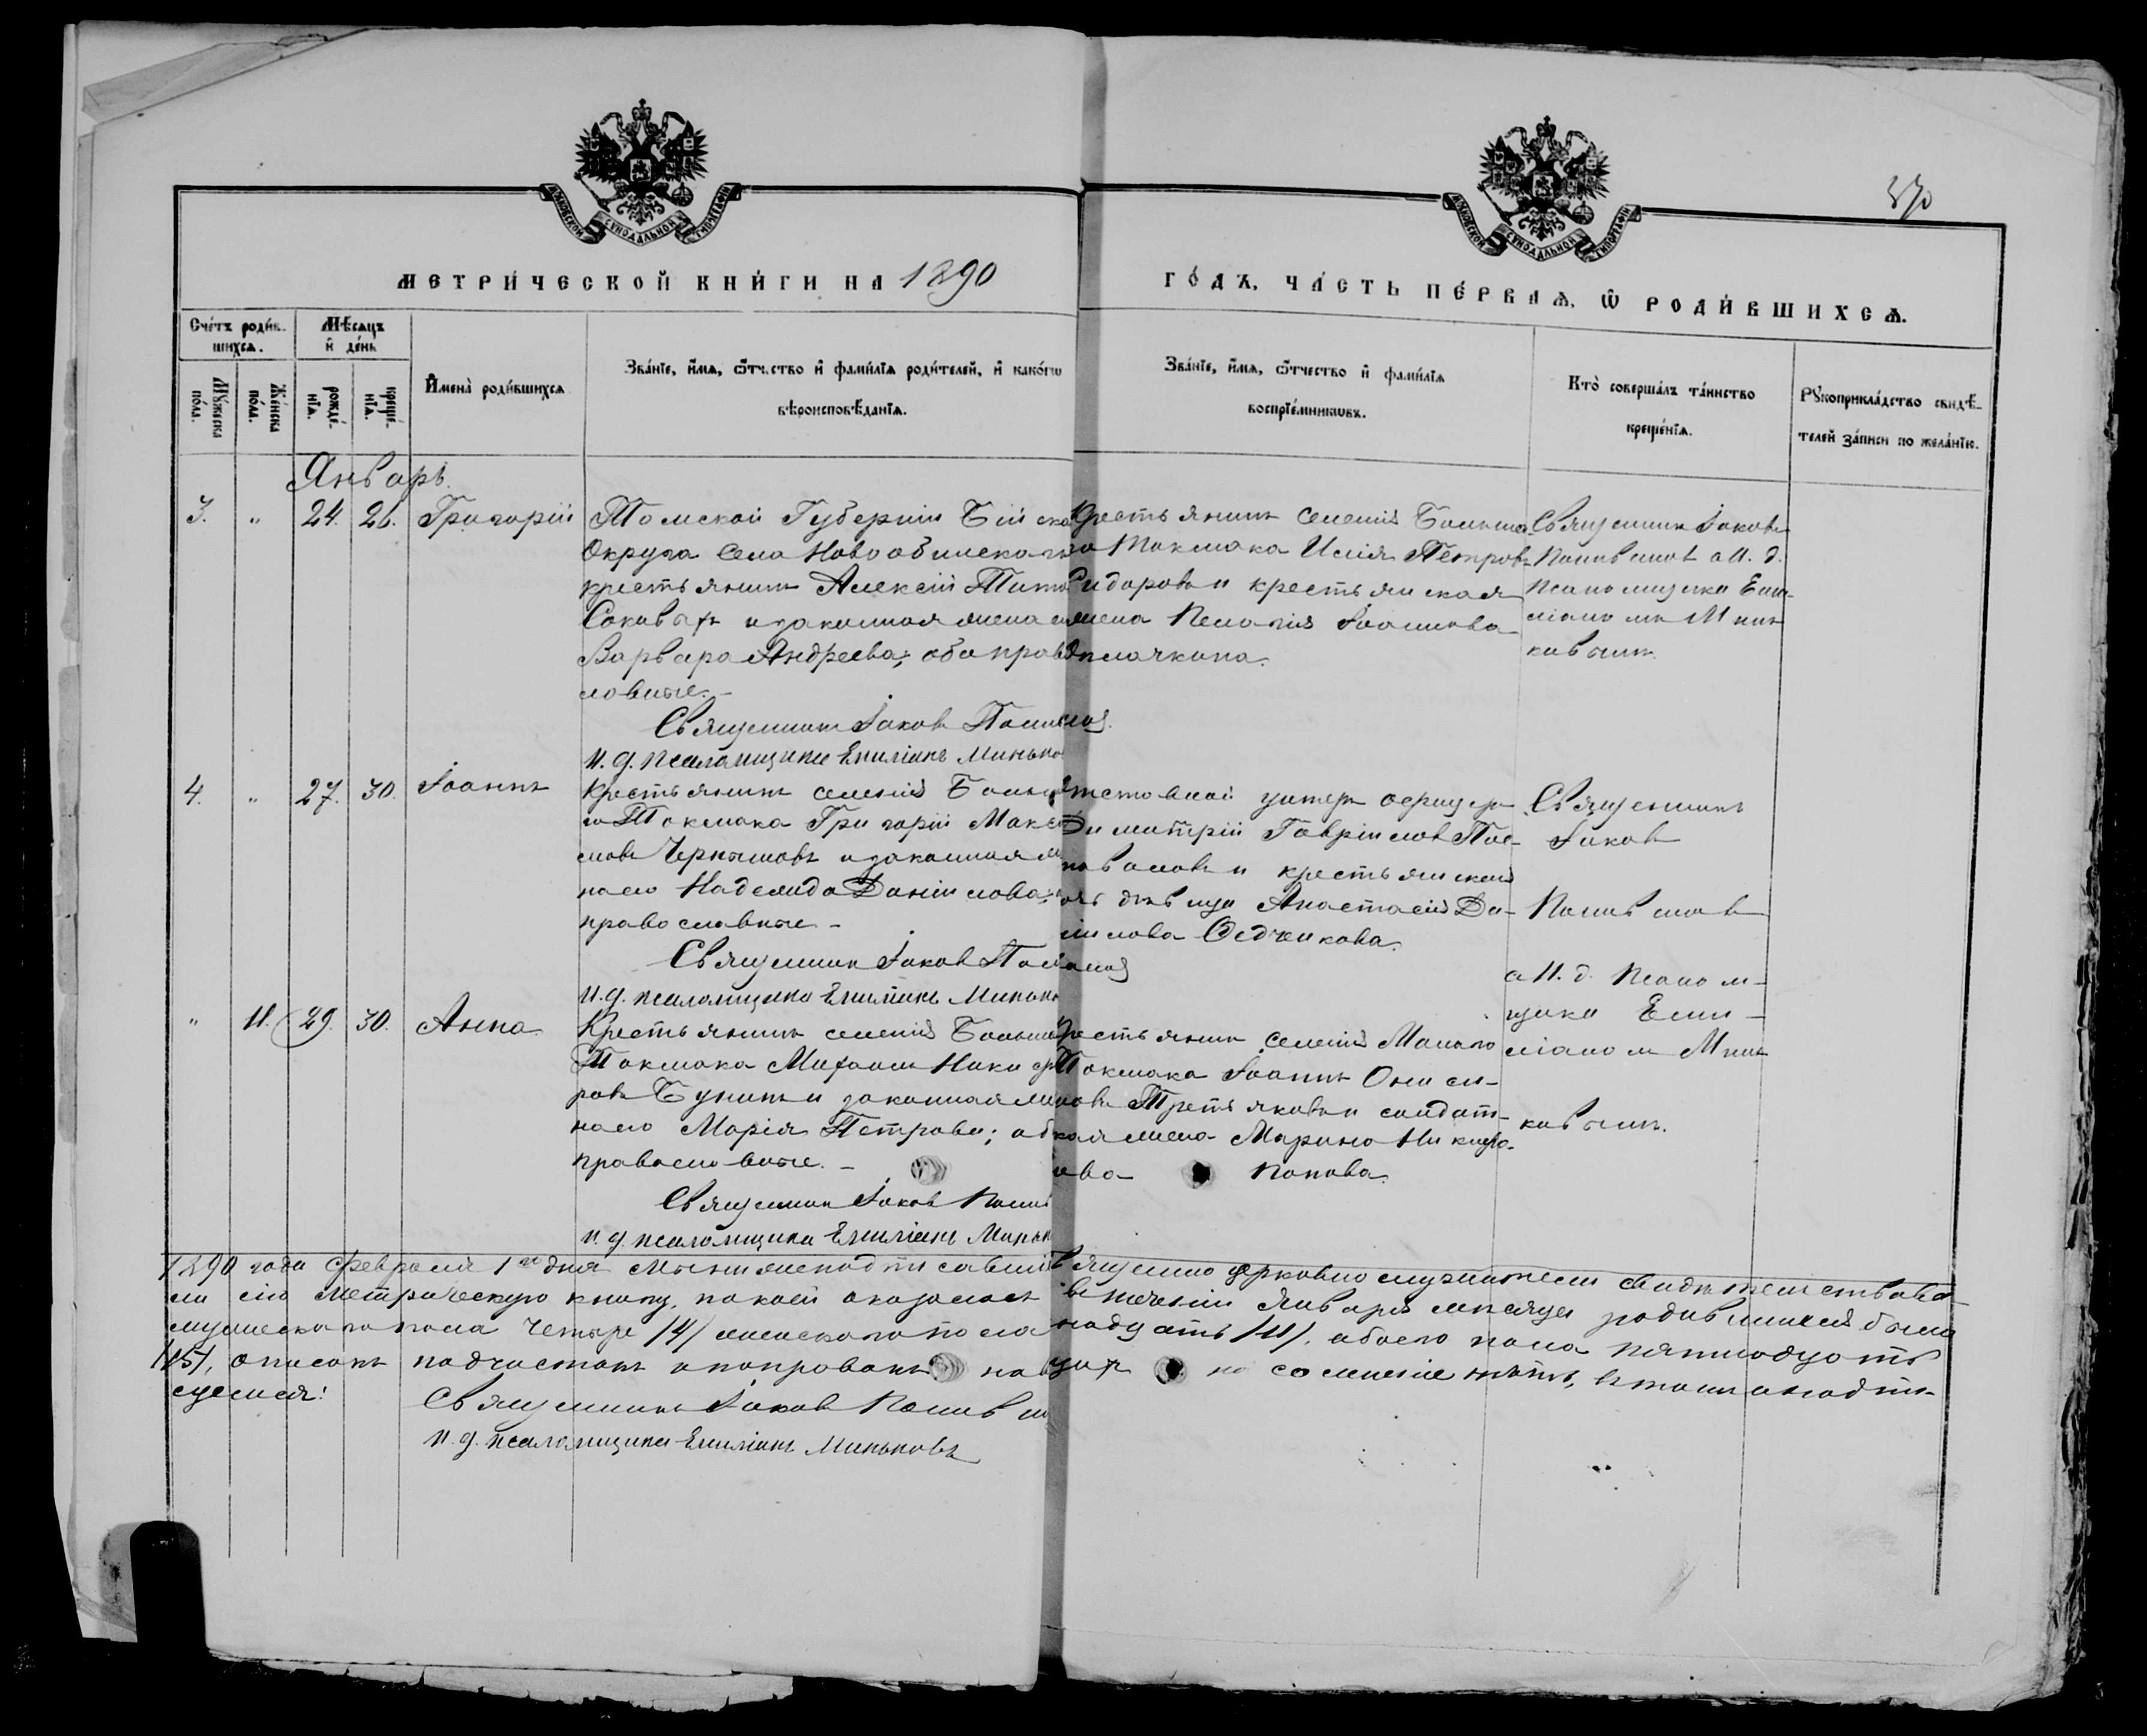 370
МЕТРИ́ЧЕСКОЙ КНИ́ГИ НА 1890
ГО́ДЪ, ЧА́СТЬ ПЕ́РВАѦ, Ѡ РОДИ́ВШИХСѦ.
Сче́тъ роди́в-
шихсѧ.
Мѣ́сѧцъ
и҆ де́нь
Му́жеска по́ла.
Же́нска по́ла.
рожде́-
нїѧ.
креще́-
нїѧ.
И҆мена̀ роди́вшихсѧ
Зва́нїе, и҆́мѧ, ѻ҆́тчество и҆ фами́лїѧ роди́телей, и҆ како́гѡ
вѣроисповѣ́данїѧ.
Зва́нїе, и҆́мѧ, ѻ҆́тчество и҆ фами́лїѧ
воспрїе́мникѡвъ.
Кто̀ соверша́лъ та́инство
креще́нїѧ.
Рꙋкоприкла́дство свидѣ́-
телей за́писи по жела́нїю.
Январь.
3. " 24. 26. Григорій
Томской Губерніи Бійска
Округа Села Новообинскаго
крестьянинъ Алексій Тито
Соковыхъ и законная жена е
Варвара Андреева; оба прав
ловные. -
Священникъ Іаковъ Полив
И. д. псаломщика Емиліанъ Минько
Крестьянинъ селенія Больша
го Токмака Илія Петровъ
Сидоровъ и крестьянская
жена Пелагія Іоаннова
Священникъ Іаковъ
а И. д.
псаломщика Еми-
ліаномъ Минь
ковымъ.
4. " 27. 30. Іоаннъ
Крестьянинъ селенія Больш
го Токмака Григорій Макси
мовъ Чернышовъ и законная же
на его Надежда Даніилова;
православные -
Священникъ Іаковъ Поли
И. д. псаломщика Емиліанъ Минько
унтеръ офицеръ
Димитрій Гавріиловъ По-
и крестьянская
дѣвица Анастасія Да-
ніилова Федченкова.
Священникъ
Іаковъ
а И. д. псалом-
щика Еми-
ліаномъ Минь
ковымъ.
" 11. 29. 30. Анна
Крестьянинъ селенія Больша
Токмака Михаилъ Никифо
ровъ Бунинъ и законная же
на его Марія Петрова; об
православные. -
Священникъ Іаковъ Поли
И. д. псаломщика Емиліанъ Миньк
Крестьянинъ селенія Малаго
Токмака Іоаннъ Ониси-
мовъ Третьяковъ и солдат-
ская жена Марина Никифо-
рова Попова.
1890 года Февраля 1го дня мы нижеподписавшіи священно церковно служители свидѣтельствова-
ли сію метрическую книгу, по коей оказалось въ теченіи Января мѣсяца родившихся было
мужескаго пола четыре /4/ женскаго пола надцать /11/, обоего пола пятнадцать
/15/, описокъ подчистокъ и поправокъ наводящихъ на сомнѣніе нѣтъ, въ томъ и подпи-
суемся:
Священникъ Іаковъ Полив
И. д. псаломщика Емиліанъ Миньковъ